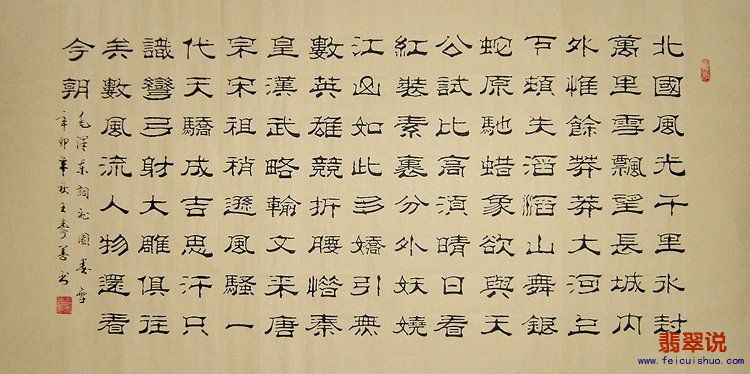 北國風光千里冰封
萬里雪飄望長城內
外惟餘莽莽大河上
下頓失滔滔山舞銀
蛇原馳蜡象欲與天
公試比高湏晴日看
紅裝素裹分外妖嬈
江山如此多嬌引無
數英雄競折腰惜秦
皇漢武略輸文采唐
宗宋祖稍遜風騷一
代天驕成吉思汗只
識彎弓射大雕俱往
矣數風流人物還看
今朝
毛澤東詞沁園春雪
辛卯年秋王
翡翠说
www.feicuishuo.com